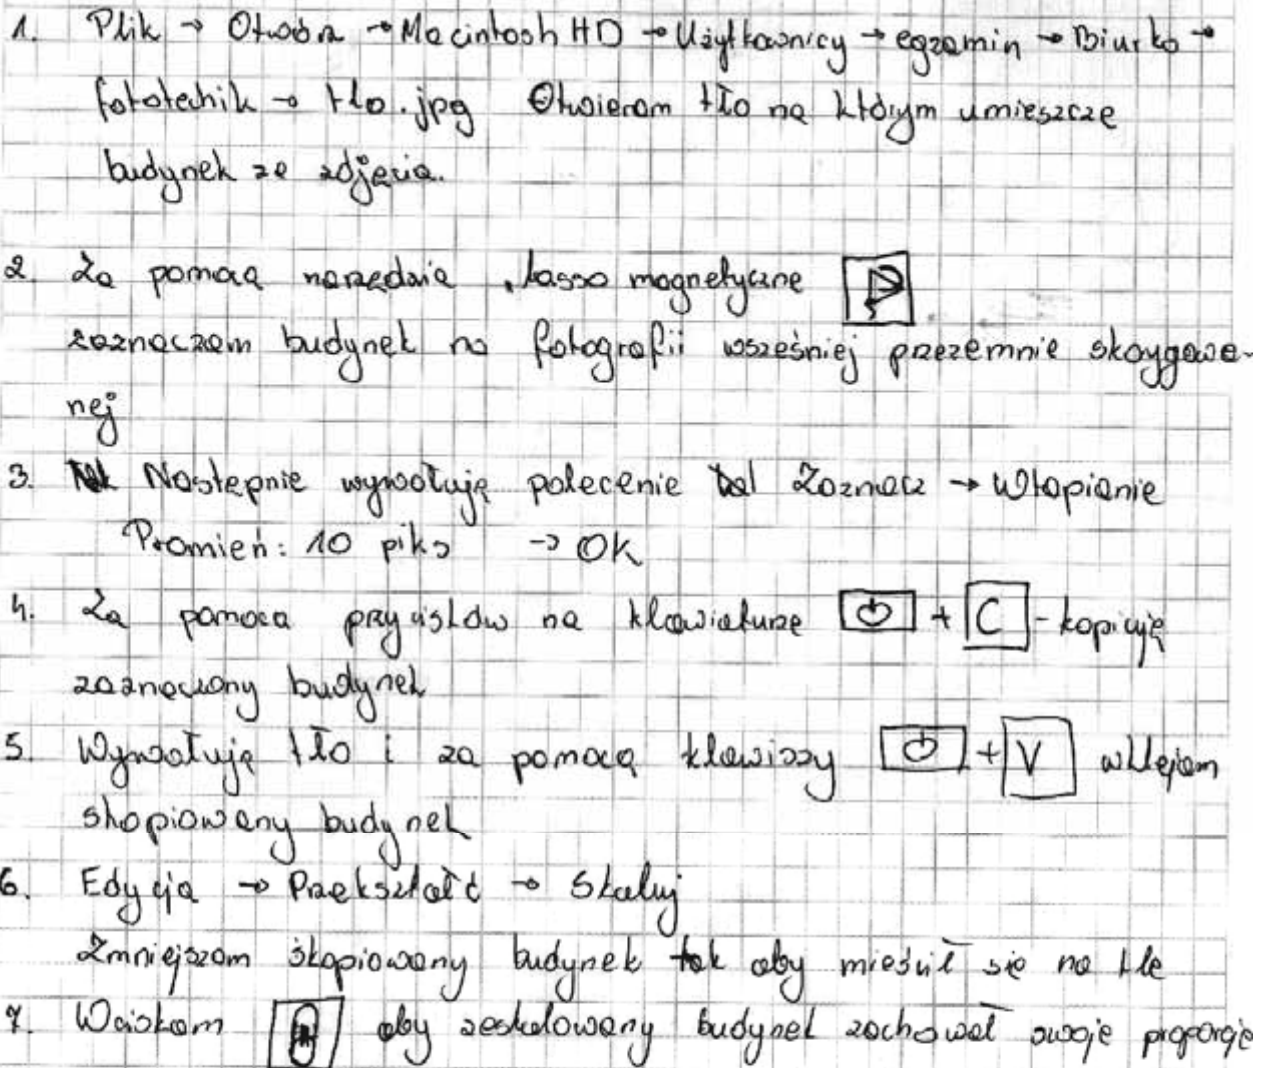 1. Plik → Otwórz → Macintosh HD → Użytkownicy → egzamin → Biurko →
fototechnik → tło.jpg Otwieram tło na którym umieszczę
budynek ze zdjęcia.
2. Za pomocą narzędzia lasso magnetyczne
zaznaczam budynek na fotografii wsześniej przezemnie skorygowa-
nej
3. Następnie wywołuję polecenie Zaznacz → Wtapianie
Promień: 10 piks → OK
4. Za pomoca przycisków na klawiaturze + C - kopiuję
zaznaczony budynek
5. Wywołuję tło i za pomocą klawiszy + V wklejam
skopiowany budynek
6. Edycja → Przekształć → Skaluj
Zmniejszam skopiowany budynek tak aby mieścił się na tle
7. Wciskam aby zeskalowany budynek zachował swoje proporcje